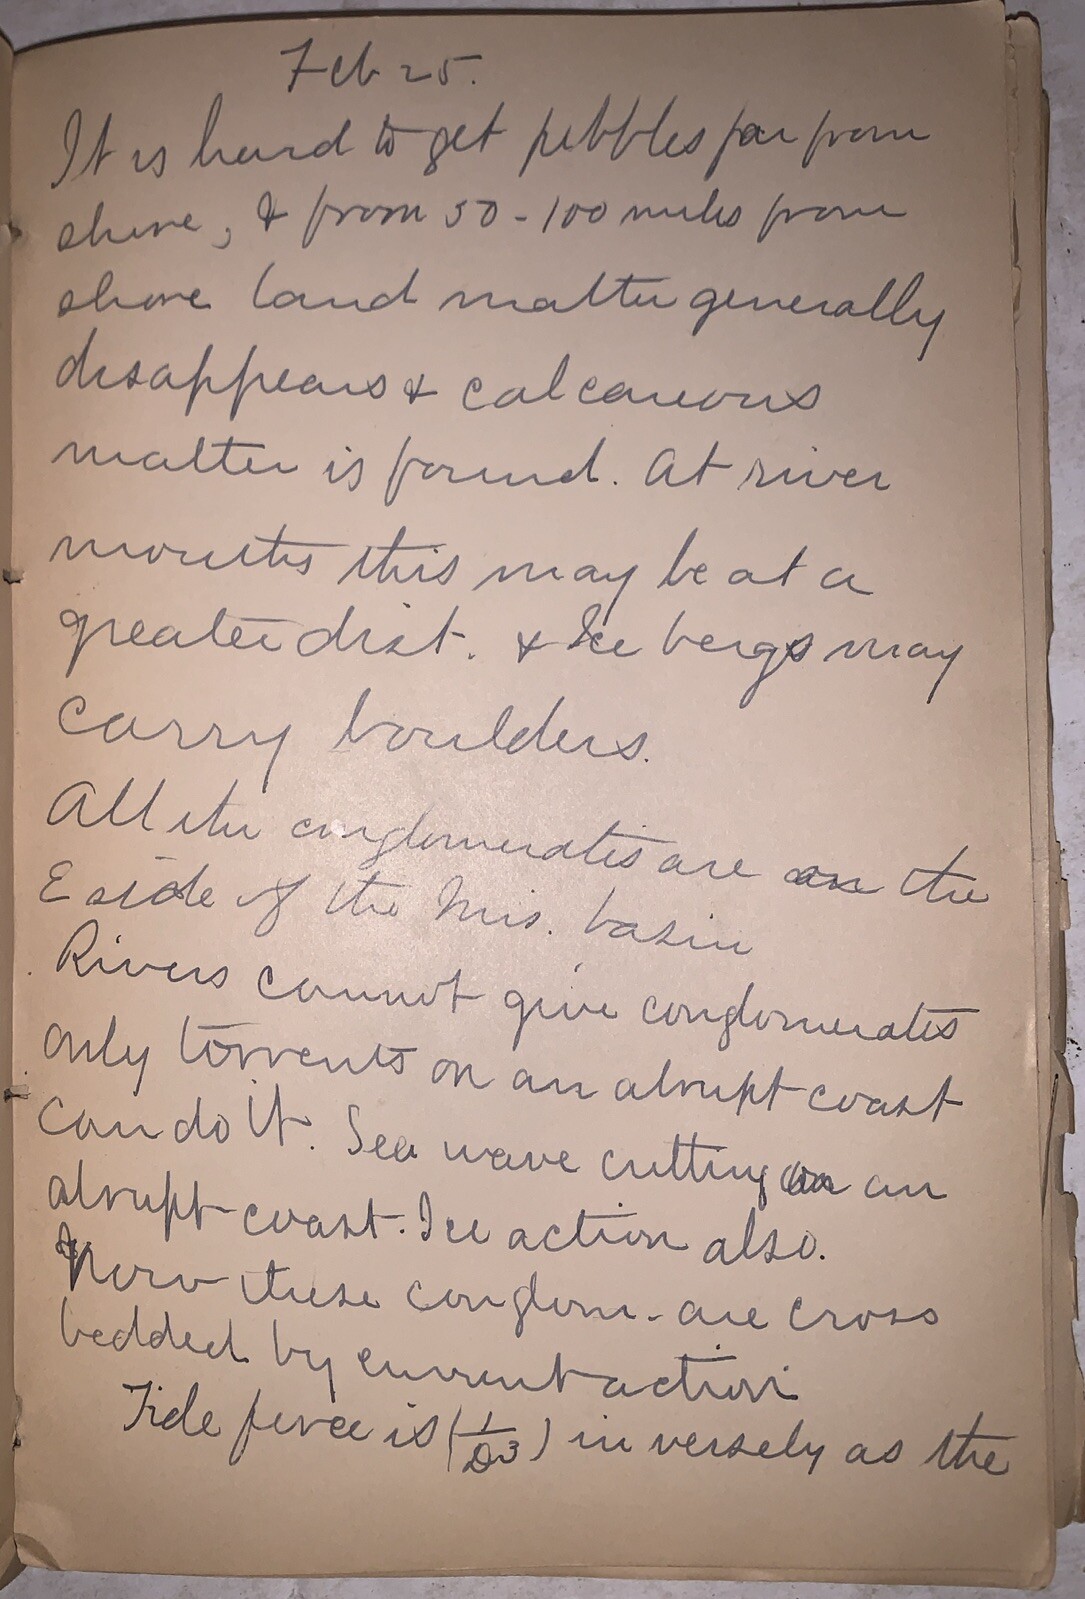 Feb 25.
It is hard to get pebbles far from
shore, & from 50-100 miles from
shore land matter generally
disappears & calcareous
matter is found. At river
mouths this may be at a
greater dist. & Ice bergs may
carry boulders.
All the conglomerates are on the
E side of the Mis. basin
Rivers cannot give conglomerates
only torrents on an abrupt coast
can do it. Sea wave cutting on an
abrupt coast. Ice action also.
Now these conglom. are cross
bedded by current action
Tide force is (1/D³) inversely as the